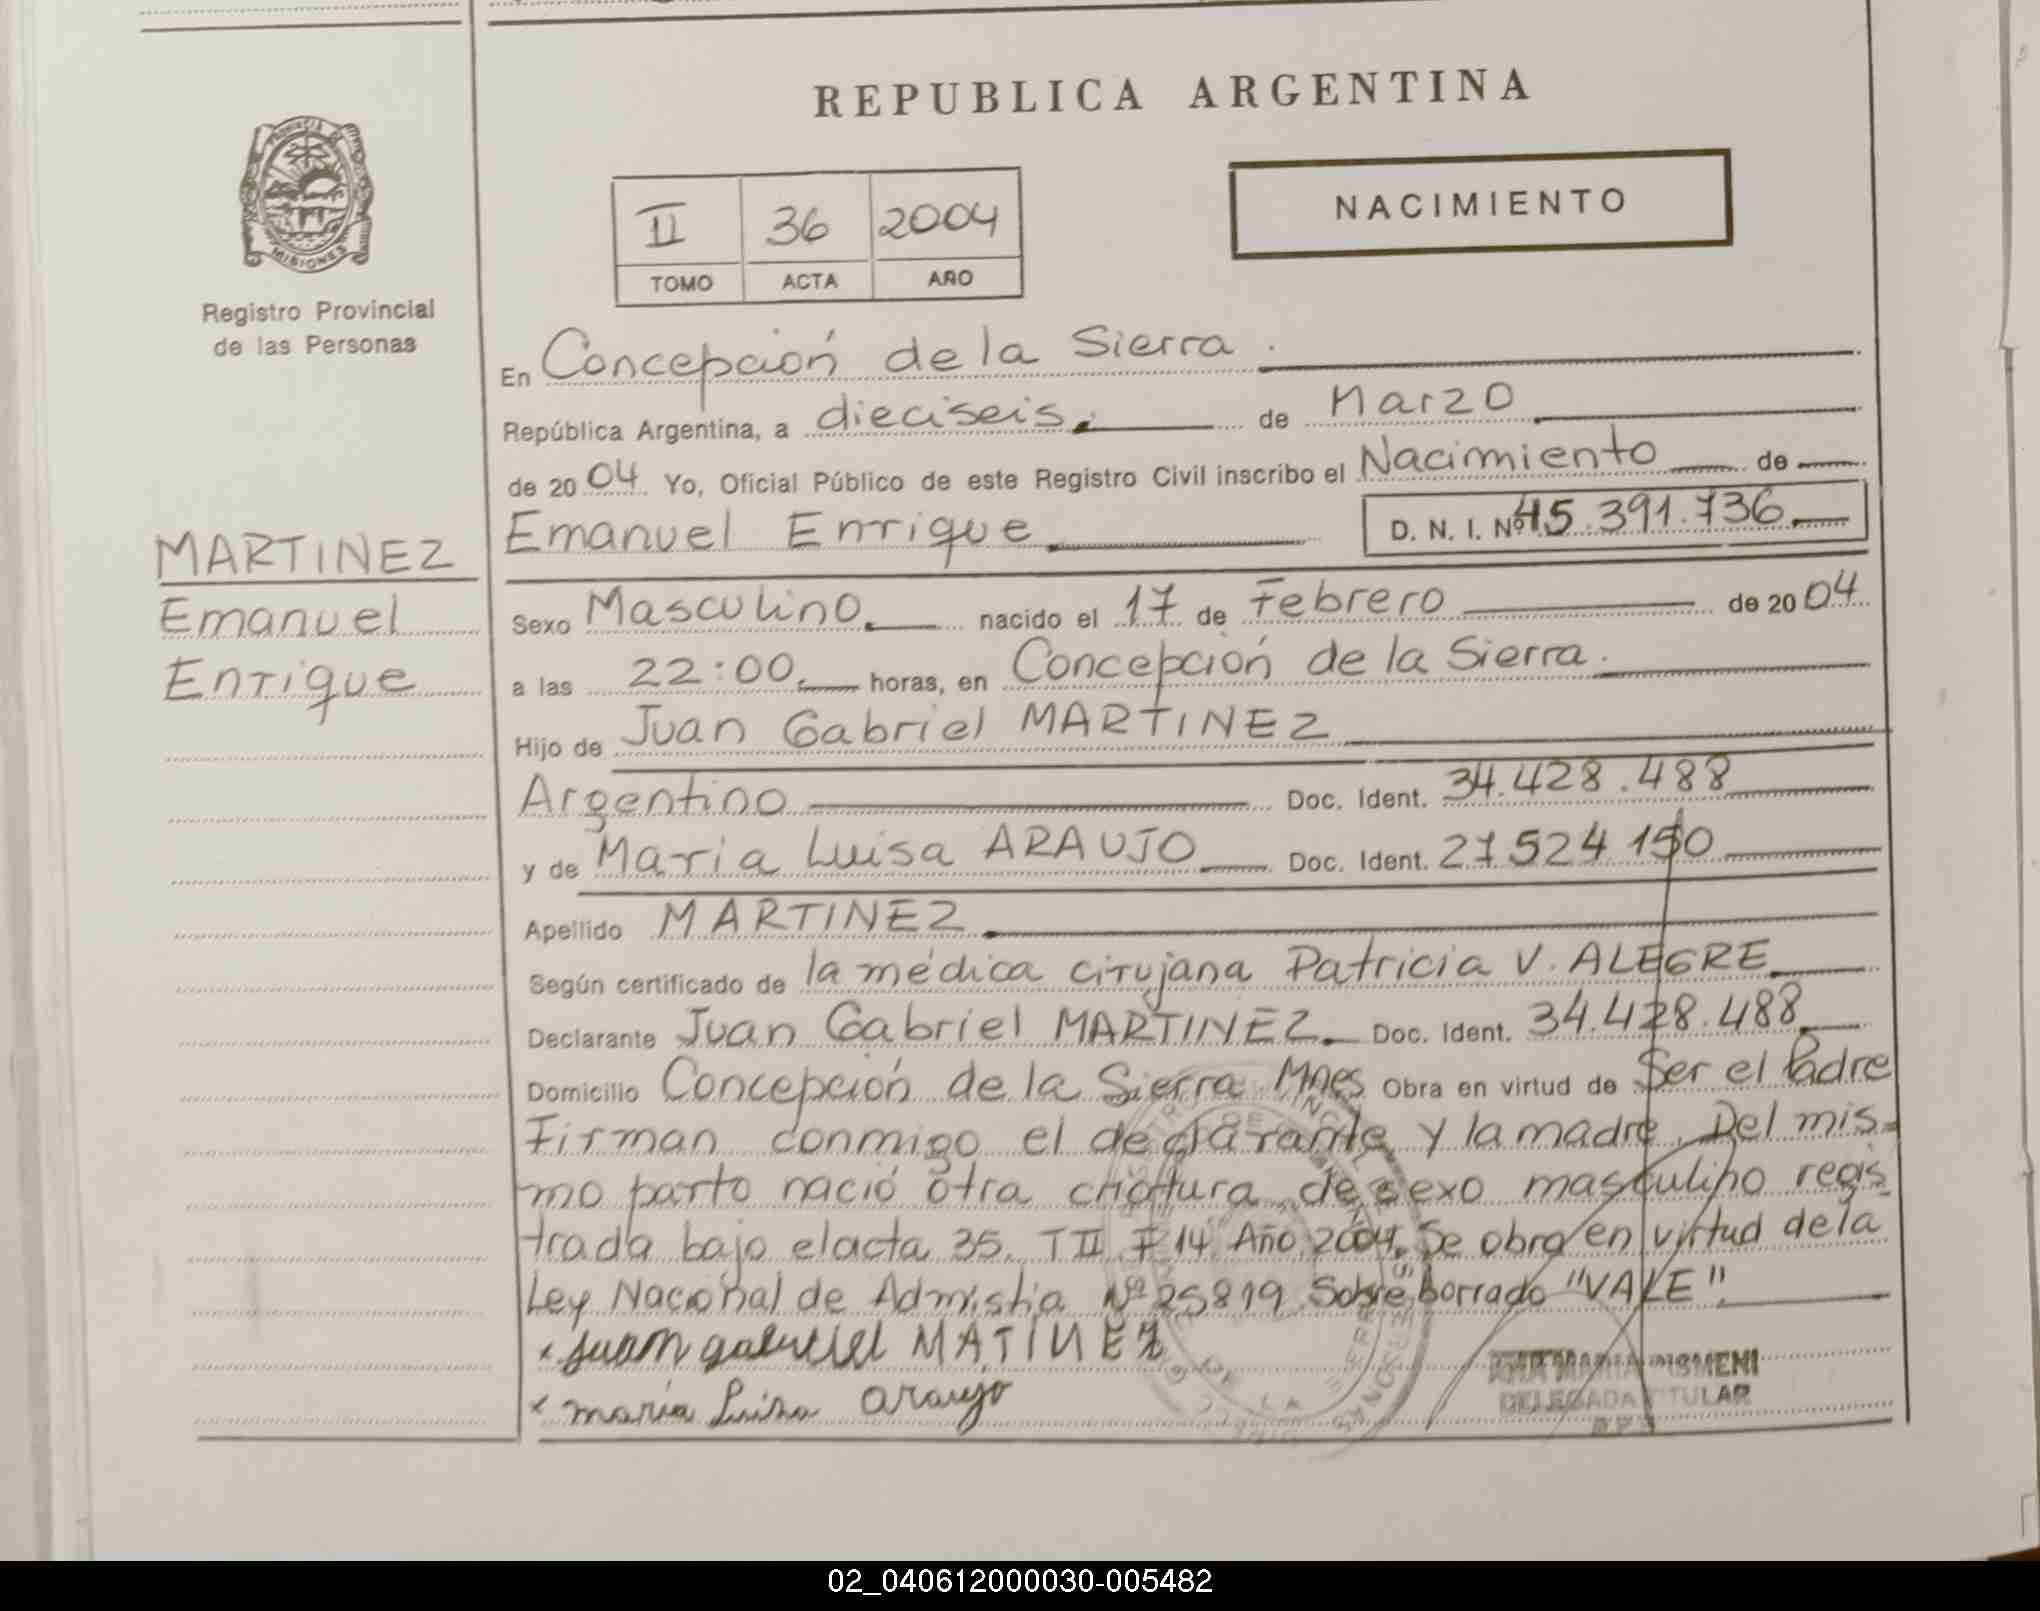 REPUBLICA ARGENTINA
PROVINCIA DE
MISIONES
Registro Provincial
de las Personas
II 36 2004
TOMO ACTA AÑO
NACIMIENTO
En Concepción de la Sierra.
República Argentina, a dieciseis. de Marzo
de 20 04 Yo, Oficial Público de este Registro Civil inscribo el Nacimiento de
Emanuel Enrique D. N. I. Nº 45.391.736
MARTINEZ
Emanuel
Enrique
Sexo Masculino. nacido el 17 de Febrero de 20 04
a las 22:00. horas, en Concepción de la Sierra.
Hijo de Juan Gabriel MARTINEZ
Argentino Doc. Ident. 34.428.488
y de Maria Luisa ARAUJO Doc. Ident. 27524150
Apellido MARTINEZ.
Según certificado de la médica cirujana Patricia V. ALEGRE
Declarante Juan Gabriel MARTINEZ. Doc. Ident. 34.428.488
Domicilio Concepción de la Sierra Mnes Obra en virtud de Ser el Padre
Firman conmigo el declarante y la madre. Del mis-
mo parto nació otra criatura de sexo masculino regis-
trada bajo el acta 35. T II F 14 Año 2004. Se obra en virtud de la
Ley Nacional de Admistia Nº 25819. Sobre borrado "VALE".
x juan gabriel MATINEZ
x maria Luisa araujo
DELEGADA TITULAR
02_040612000030-005482